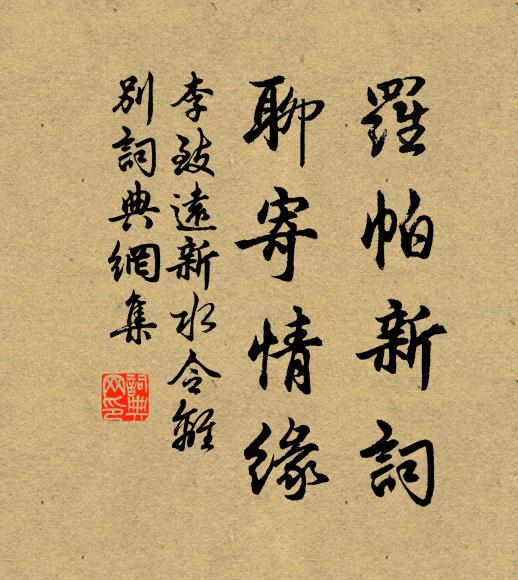 羅帕新詞
聊寄情緣
李致遠新水令離
別詞典網集
詞典網印